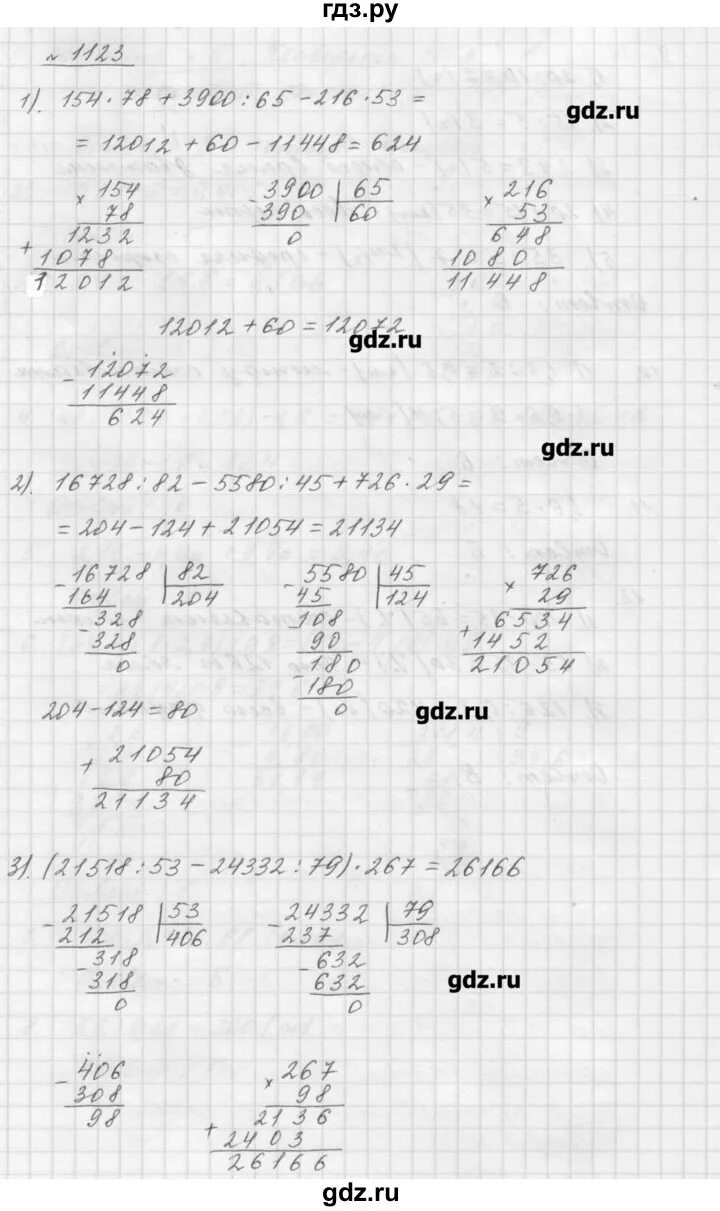 гдз.ру
№ 1123
1). 154 · 78 + 3900 : 65 - 216 · 53 =
gdz.ru
= 12012 + 60 - 11448 = 624
× 154
78
1232
+ 1078
12012
- 3900 | 65
390 | 60
0
× 216
53
648
1080
11448
12012 + 60 = 12072
gdz.ru
- 12072
11448
624
gdz.ru
2). 16728 : 82 - 5580 : 45 + 726 · 29 =
= 204 - 124 + 21054 = 21134
- 16728 | 82
164 | 204
- 328
328
0
- 5580 | 45
45 | 124
- 108
90
- 180
180
0
× 726
29
+ 6534
1452
21054
204 - 124 = 80
gdz.ru
+ 21054
80
21134
3). (21518 : 53 - 24332 : 79) · 267 = 26166
- 21518 | 53
212 | 406
- 318
318
0
- 24332 | 79
237 | 308
- 632
632
0
gdz.ru
- 406
308
98
× 267
98
+ 2136
2403
26166
gdz.ru